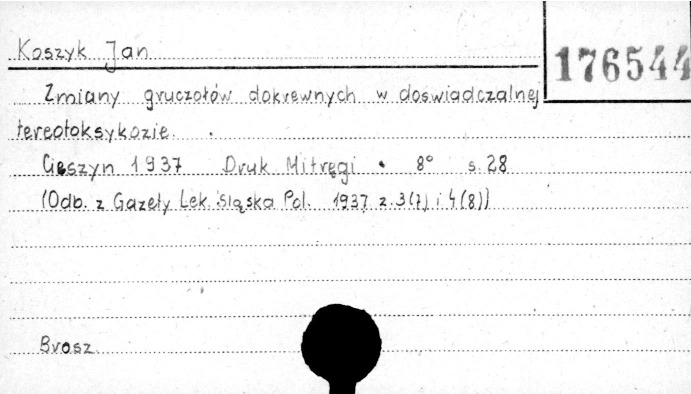 Koszyk Jan
176544
Zmiany gruczołów dokrewnych w doświadczalnej
tereotoksykozie.
Cieszyn 1937 Druk Mitręgi • 8° s. 28
(Odb. z Gazety Lek. Śląska Pol. 1937 z. 3(7) i 4(8))
Brosz.